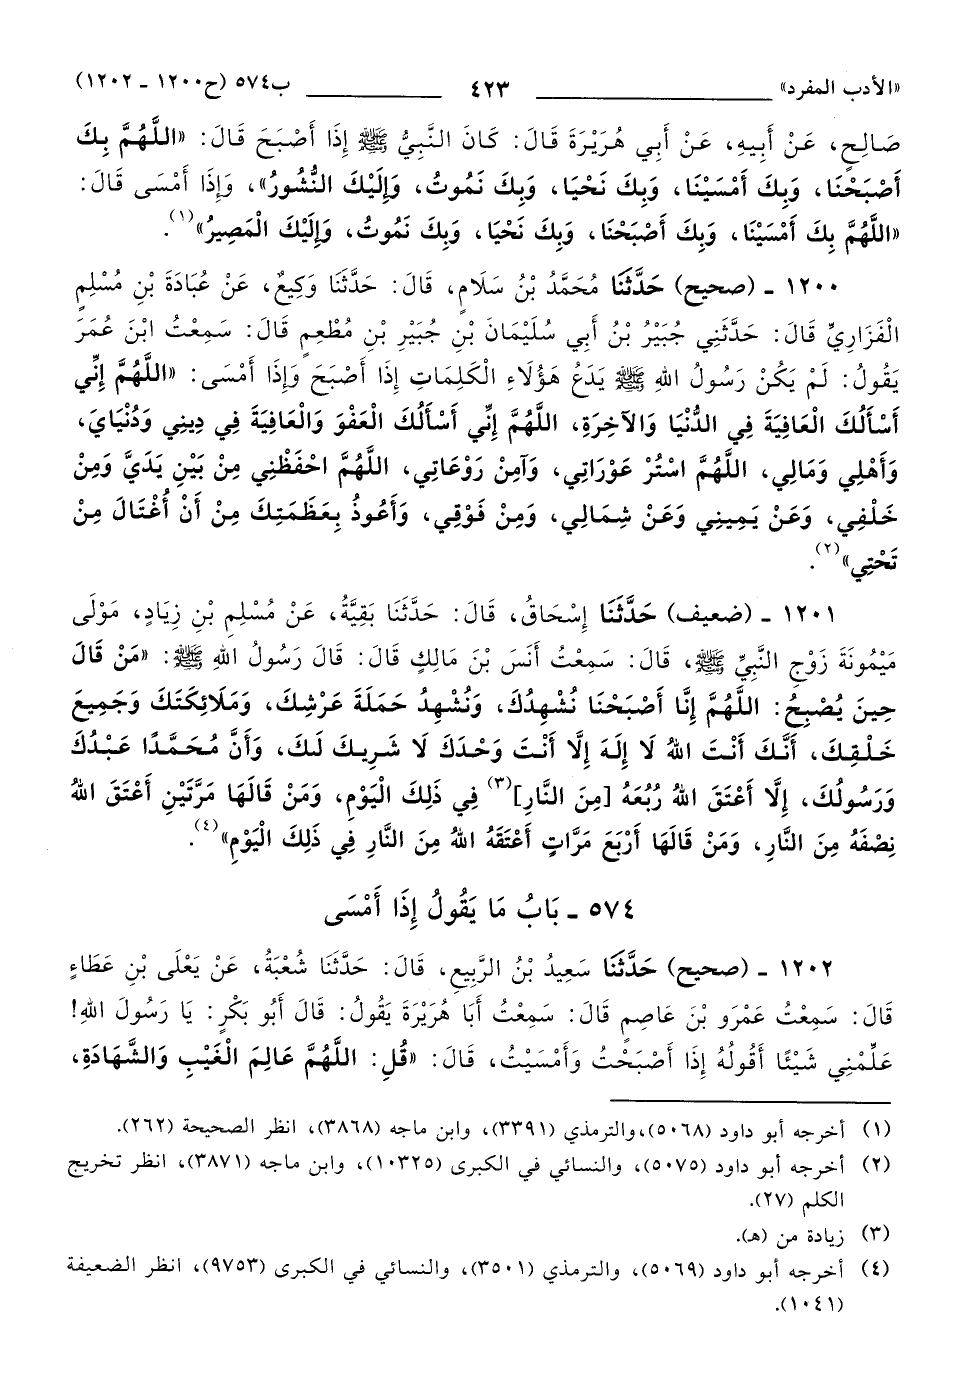 «الأدب المفرد» ٤٢٣ ب٥٧٤ (ح١٢٠٠ ـ ١٢٠٢)
صَالِحٍ، عَنْ أَبِيهِ، عَنْ أَبِي هُرَيْرَةَ قَالَ: كَانَ النَّبِيُّ ﷺ إِذَا أَصْبَحَ قَالَ: «اللَّهُمَّ بِكَ
أَصْبَحْنَا، وَبِكَ أَمْسَيْنَا، وَبِكَ نَحْيَا، وَبِكَ نَمُوتُ، وَإِلَيْكَ النُّشُورُ»، وَإِذَا أَمْسَى قَالَ:
«اللَّهُمَّ بِكَ أَمْسَيْنَا، وَبِكَ أَصْبَحْنَا، وَبِكَ نَحْيَا، وَبِكَ نَمُوتُ، وَإِلَيْكَ الْمَصِيرُ»(١).
١٢٠٠ ـ (صحيح) حَدَّثَنَا مُحَمَّدُ بْنُ سَلَامٍ، قَالَ: حَدَّثَنَا وَكِيعٌ، عَنْ عُبَادَةَ بْنِ مُسْلِمٍ
الْفَزَارِيِّ قَالَ: حَدَّثَنِي جُبَيْرُ بْنُ أَبِي سُلَيْمَانَ بْنِ جُبَيْرِ بْنِ مُطْعِمٍ قَالَ: سَمِعْتُ ابْنَ عُمَرَ
يَقُولُ: لَمْ يَكُنْ رَسُولُ اللهِ ﷺ يَدَعُ هَؤُلَاءِ الْكَلِمَاتِ إِذَا أَصْبَحَ وَإِذَا أَمْسَى: «اللَّهُمَّ إِنِّي
أَسْأَلُكَ الْعَافِيَةَ فِي الدُّنْيَا وَالآخِرَةِ، اللَّهُمَّ إِنِّي أَسْأَلُكَ الْعَفْوَ وَالْعَافِيَةَ فِي دِينِي وَدُنْيَايَ،
وَأَهْلِي وَمَالِي، اللَّهُمَّ اسْتُرْ عَوْرَاتِي، وَآمِنْ رَوْعَاتِي، اللَّهُمَّ احْفَظْنِي مِنْ بَيْنِ يَدَيَّ وَمِنْ
خَلْفِي، وَعَنْ يَمِينِي وَعَنْ شِمَالِي، وَمِنْ فَوْقِي، وَأَعُوذُ بِعَظَمَتِكَ مِنْ أَنْ أُغْتَالَ مِنْ
تَحْتِي»(٢).
١٢٠١ ـ (ضعيف) حَدَّثَنَا إِسْحَاقُ، قَالَ: حَدَّثَنَا بَقِيَّةُ، عَنْ مُسْلِمِ بْنِ زِيَادٍ، مَوْلَى
مَيْمُونَةَ زَوْجِ النَّبِيِّ ﷺ، قَالَ: سَمِعْتُ أَنَسَ بْنَ مَالِكٍ قَالَ: قَالَ رَسُولُ اللهِ ﷺ: «مَنْ قَالَ
حِينَ يُصْبِحُ: اللَّهُمَّ إِنَّا أَصْبَحْنَا نُشْهِدُكَ، وَنُشْهِدُ حَمَلَةَ عَرْشِكَ، وَمَلَائِكَتَكَ وَجَمِيعَ
خَلْقِكَ، أَنَّكَ أَنْتَ اللهُ لَا إِلَهَ إِلَّا أَنْتَ وَحْدَكَ لَا شَرِيكَ لَكَ، وَأَنَّ مُحَمَّدًا عَبْدُكَ
وَرَسُولُكَ، إِلَّا أَعْتَقَ اللهُ رُبُعَهُ [مِنَ النَّارِ](٣) فِي ذَلِكَ الْيَوْمِ، وَمَنْ قَالَهَا مَرَّتَيْنِ أَعْتَقَ اللهُ
نِصْفَهُ مِنَ النَّارِ، وَمَنْ قَالَهَا أَرْبَعَ مَرَّاتٍ أَعْتَقَهُ اللهُ مِنَ النَّارِ فِي ذَلِكَ الْيَوْمِ»(٤).
٥٧٤ ـ بَابُ مَا يَقُولُ إِذَا أَمْسَى
١٢٠٢ ـ (صحيح) حَدَّثَنَا سَعِيدُ بْنُ الرَّبِيعِ، قَالَ: حَدَّثَنَا شُعْبَةُ، عَنْ يَعْلَى بْنِ عَطَاءٍ
قَالَ: سَمِعْتُ عَمْرَو بْنَ عَاصِمٍ قَالَ: سَمِعْتُ أَبَا هُرَيْرَةَ يَقُولُ: قَالَ أَبُو بَكْرٍ: يَا رَسُولَ اللهِ!
عَلِّمْنِي شَيْئًا أَقُولُهُ إِذَا أَصْبَحْتُ وَأَمْسَيْتُ، قَالَ: «قُلِ: اللَّهُمَّ عَالِمَ الْغَيْبِ وَالشَّهَادَةِ،
(١) أخرجه أبو داود (٥٠٦٨)، والترمذي (٣٣٩١)، وابن ماجه (٣٨٦٨)، انظر الصحيحة (٢٦٢).
(٢) أخرجه أبو داود (٥٠٧٥)، والنسائي في الكبرى (١٠٣٢٥)، وابن ماجه (٣٨٧١)، انظر تخريج
الكلم (٢٧).
(٣) زيادة من (هـ).
(٤) أخرجه أبو داود (٥٠٦٩)، والترمذي (٣٥٠١)، والنسائي في الكبرى (٩٧٥٣)، انظر الضعيفة
(١٠٤١).